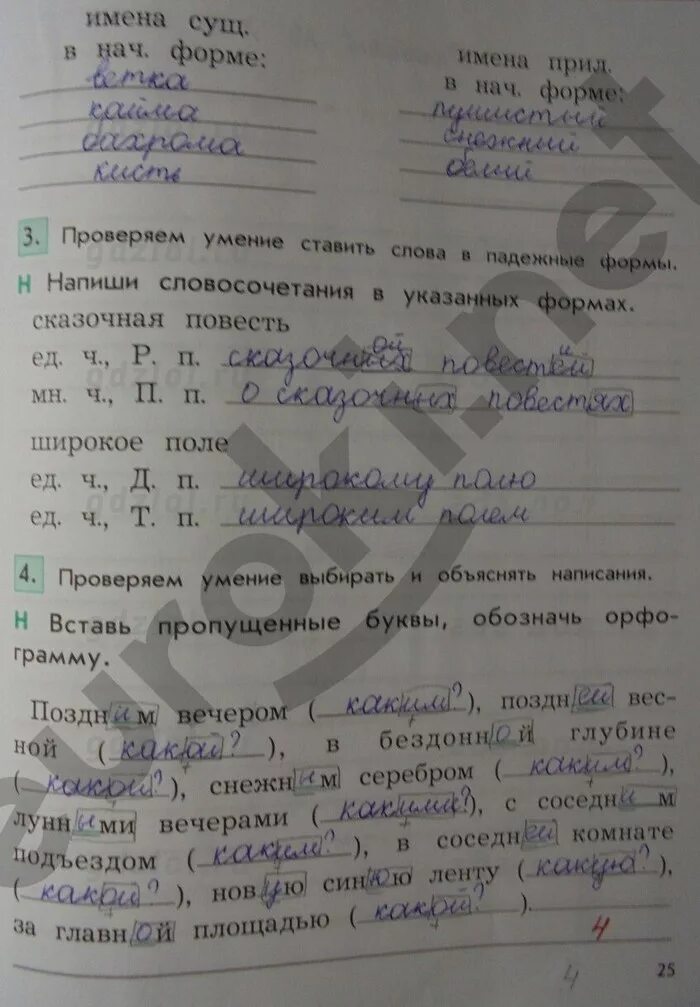 имена сущ.
в нач. форме:
ветка
кайма
бахрома
кисть
имена прил.
в нач. форме:
пушистый
снежный
белый
3. Проверяем умение ставить слова в падежные формы.
Н Напиши словосочетания в указанных формах.
сказочная повесть
ед. ч., Р. п. сказочных ой повестей и
мн. ч., П. п. о сказочных повестях
широкое поле
ед. ч., Д. п. широкому полю
ед. ч., Т. п. широким полем
4. Проверяем умение выбирать и объяснять написания.
Н Вставь пропущенные буквы, обозначь орфо-
грамму.
Поздним вечером ( каким? ), поздней вес-
ной ( какой? ), в бездонной глубине
( какой? ), снежным серебром ( каким? ),
лунными вечерами ( какими? ), с соседним
подъездом ( каким? ), в соседней комнате
( какой? ), новую синюю ленту ( какую? ),
за главной площадью ( какой? ).
4
4
25
euroki.net
gdzlol.ru